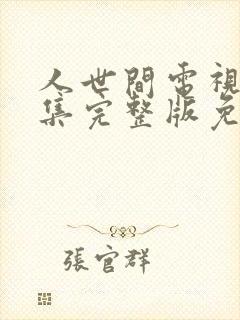 人世間電視
集完整版免
張官群